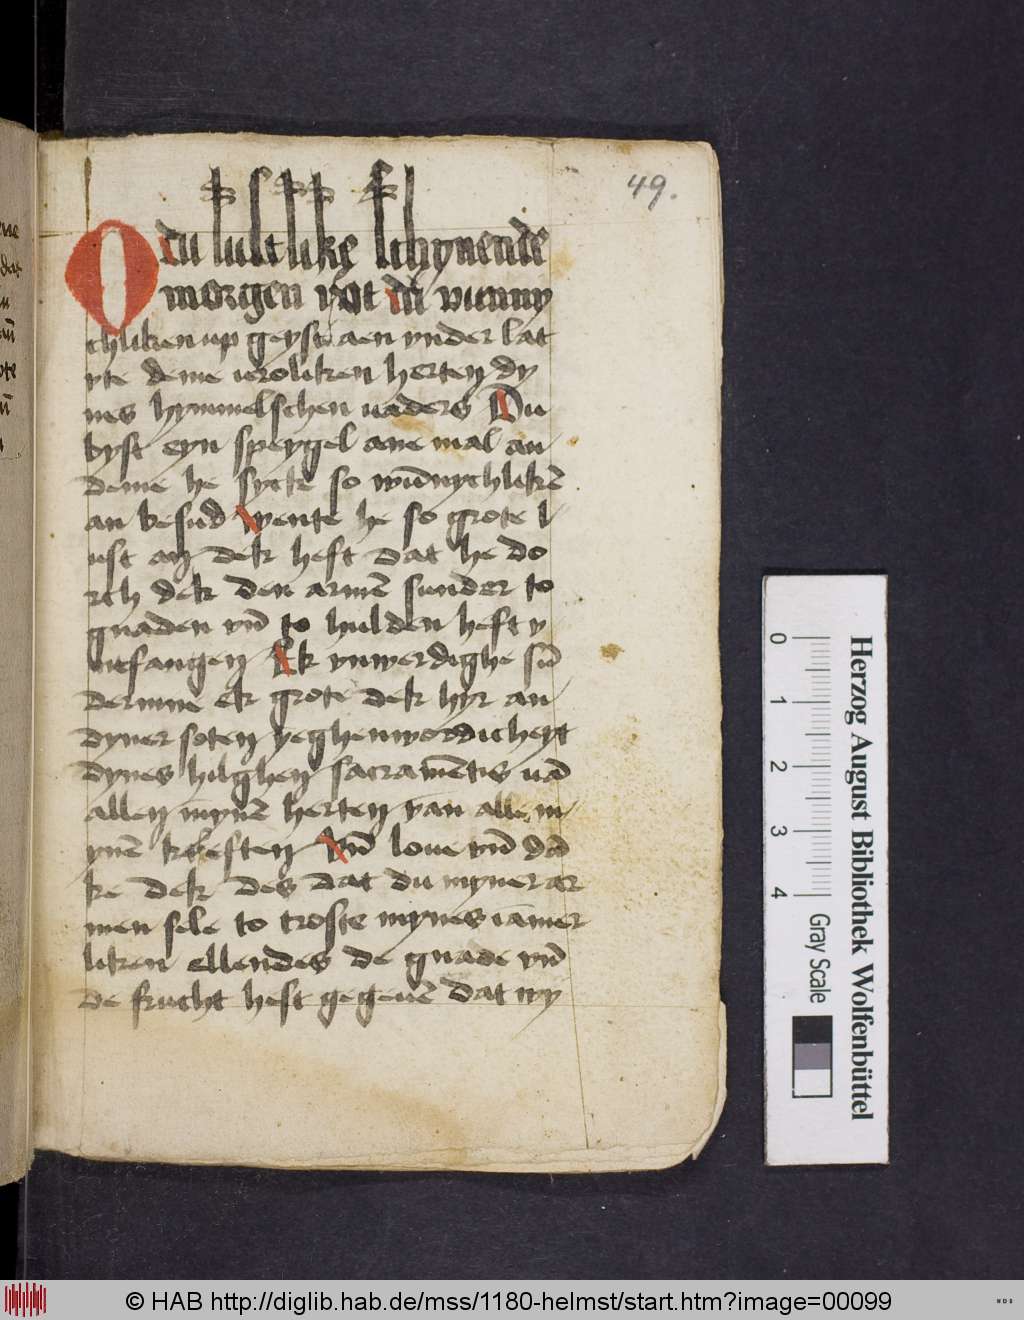 49.
O du lustlike schynende
morgen rot du wnny
chliken up geyst aen vnder lat
vte deme veroliken herten dy
nes hymmelschen vaders Du
byst eyn speygel ane mal an
deme he syck so wūnychlikē
an besud wente he so grote l
ust an dek heft dat he do
rch dek den armē sunder to
gnaden vn̄ to hulden heft v
ntfangen Ek vnwerdighe sū
derinne ek grote dek hyr an
dyner soten yeghenwordicheyt
dynes hilghen sacramētis vā
allen mynē herten van alle m
ynē kreften Vn̄ loue vn̄ dā
ke dek des dat du myner ar
men sele to troste mynes iāmer
liken ellendes de gnade vn̄
de frucht hest gegeuē dat wy
Herzog August Bibliothek Wolfenbüttel
0 1 2 3 4
Gray Scale
© HAB http://diglib.hab.de/mss/1180-helmst/start.htm?image=00099